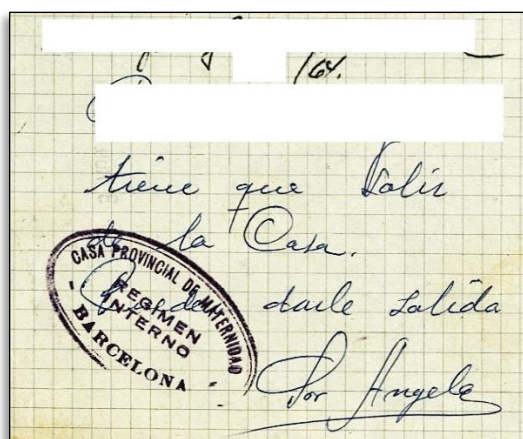 /64.
tiene que Salir
de la Casa.
Pueden darle salida
Sor Angela
CASA PROVINCIAL DE MATERNIDAD
REGIMEN
INTERNO
BARCELONA